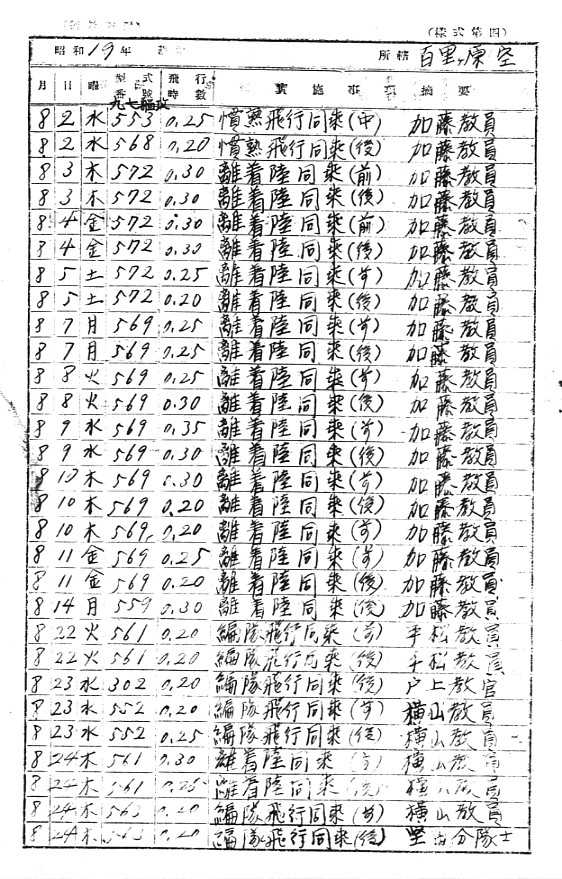 (樣式第四)
昭和19年 所轄 百里ヶ原空
月 日 曜 型式番號 飛行時數 實施事項 摘要
九七艦攻
8 2 水 553 0.25 慣熟飛行同乘(中) 加藤教員
8 2 水 568 0.20 慣熟飛行同乘(後) 加藤教員
8 3 木 572 0.30 離着陸同乘(前) 加藤教員
8 3 木 572 0.30 離着陸同乘(後) 加藤教員
8 4 金 572 0.30 離着陸同乘(前) 加藤教員
8 4 金 572 0.30 離着陸同乘(後) 加藤教員
8 5 土 572 0.25 離着陸同乘(前) 加藤教員
8 5 土 572 0.20 離着陸同乘(後) 加藤教員
8 7 月 569 0.25 離着陸同乘(前) 加藤教員
8 7 月 569 0.25 離着陸同乘(後) 加藤教員
8 8 火 569 0.25 離着陸同乘(前) 加藤教員
8 8 火 569 0.30 離着陸同乘(後) 加藤教員
8 9 水 569 0.35 離着陸同乘(前) 加藤教員
8 9 水 569 0.30 離着陸同乘(後) 加藤教員
8 10 木 569 0.30 離着陸同乘(前) 加藤教員
8 10 木 569 0.20 離着陸同乘(後) 加藤教員
8 10 木 569 0.20 離着陸同乘(前) 加藤教員
8 11 金 569 0.25 離着陸同乘(前) 加藤教員
8 11 金 569 0.20 離着陸同乘(後) 加藤教員
8 14 月 559 0.30 離着陸同乘(後) 加藤教員
8 22 火 561 0.20 編隊飛行同乘(前) 平松教員
8 22 火 561 0.20 編隊飛行同乘(後) 平松教員
8 23 水 302 0.20 編隊飛行同乘(後) 戸上教官
8 23 水 552 0.20 編隊飛行同乘(前) 横山教員
8 23 水 552 0.25 編隊飛行同乘(後) 横山教員
8 24 木 561 0.30 離着陸同乘 横山教員
8 24 木 561 0.25 離着陸同乘 横 教員
8 24 木 563 0.20 編隊飛行同乘(前) 横山教員
8 24 木 563 0.20 編隊飛行同乘(後) 分隊士